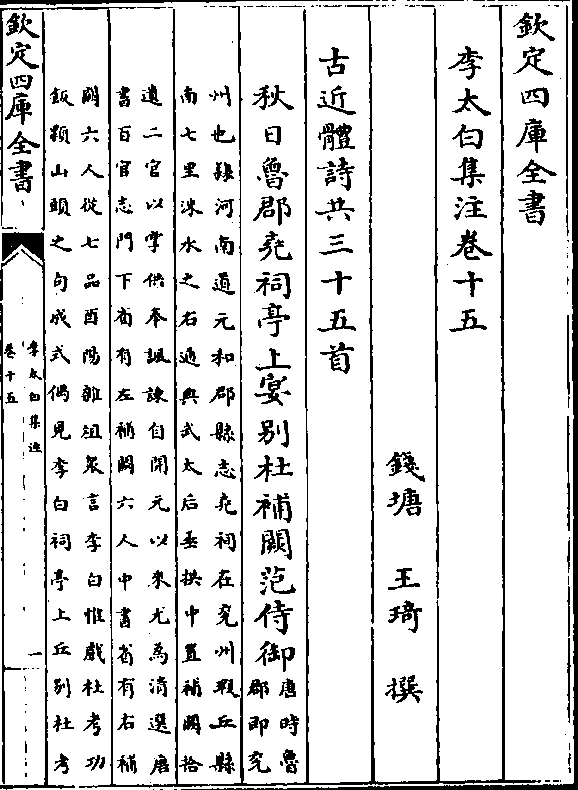 欽定四庫全書
李太白集注卷十五
錢塘　王琦　撰
古近體詩共三十五首
秋日魯郡堯祠亭上宴别杜補闕范侍御
唐時魯
郡即兗
州也隸河南道元和郡縣志堯祠在兗州瑕丘縣
南七里洙水之右通典武太后垂拱中置補闕拾
遺二官以掌供奉諷諫自開元以來尤為清選唐
書百官志門下省有左補闕六人中書省有右補
闕六人從七品酉陽雜俎衆言李白惟戲杜考功
飯顆山頭之句成式偶見李白祠亭上丘别杜考
欽定四庫全書
李太白集注
卷十五
一